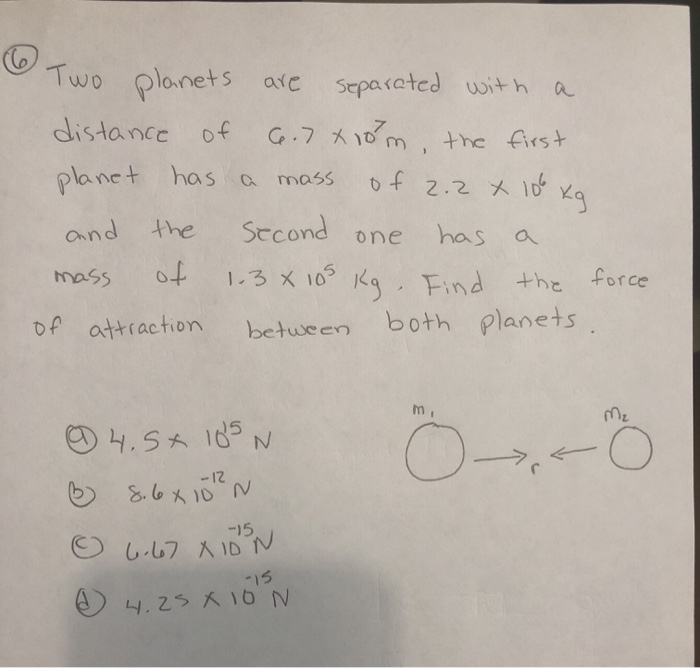 6 Two planets are separated with a
distance of 6.7 × 10⁷ m, the first
planet has a mass of 2.2 × 10⁶ Kg
and the second one has a
mass of 1.3 × 10⁵ Kg. Find the force
of attraction between both planets.
m₁ m₂
r
a 4.5 × 10¹⁵ N
b 8.6 × 10⁻¹² N
c 6.67 × 10⁻¹⁵ N
d 4.25 × 10⁻¹⁵ N